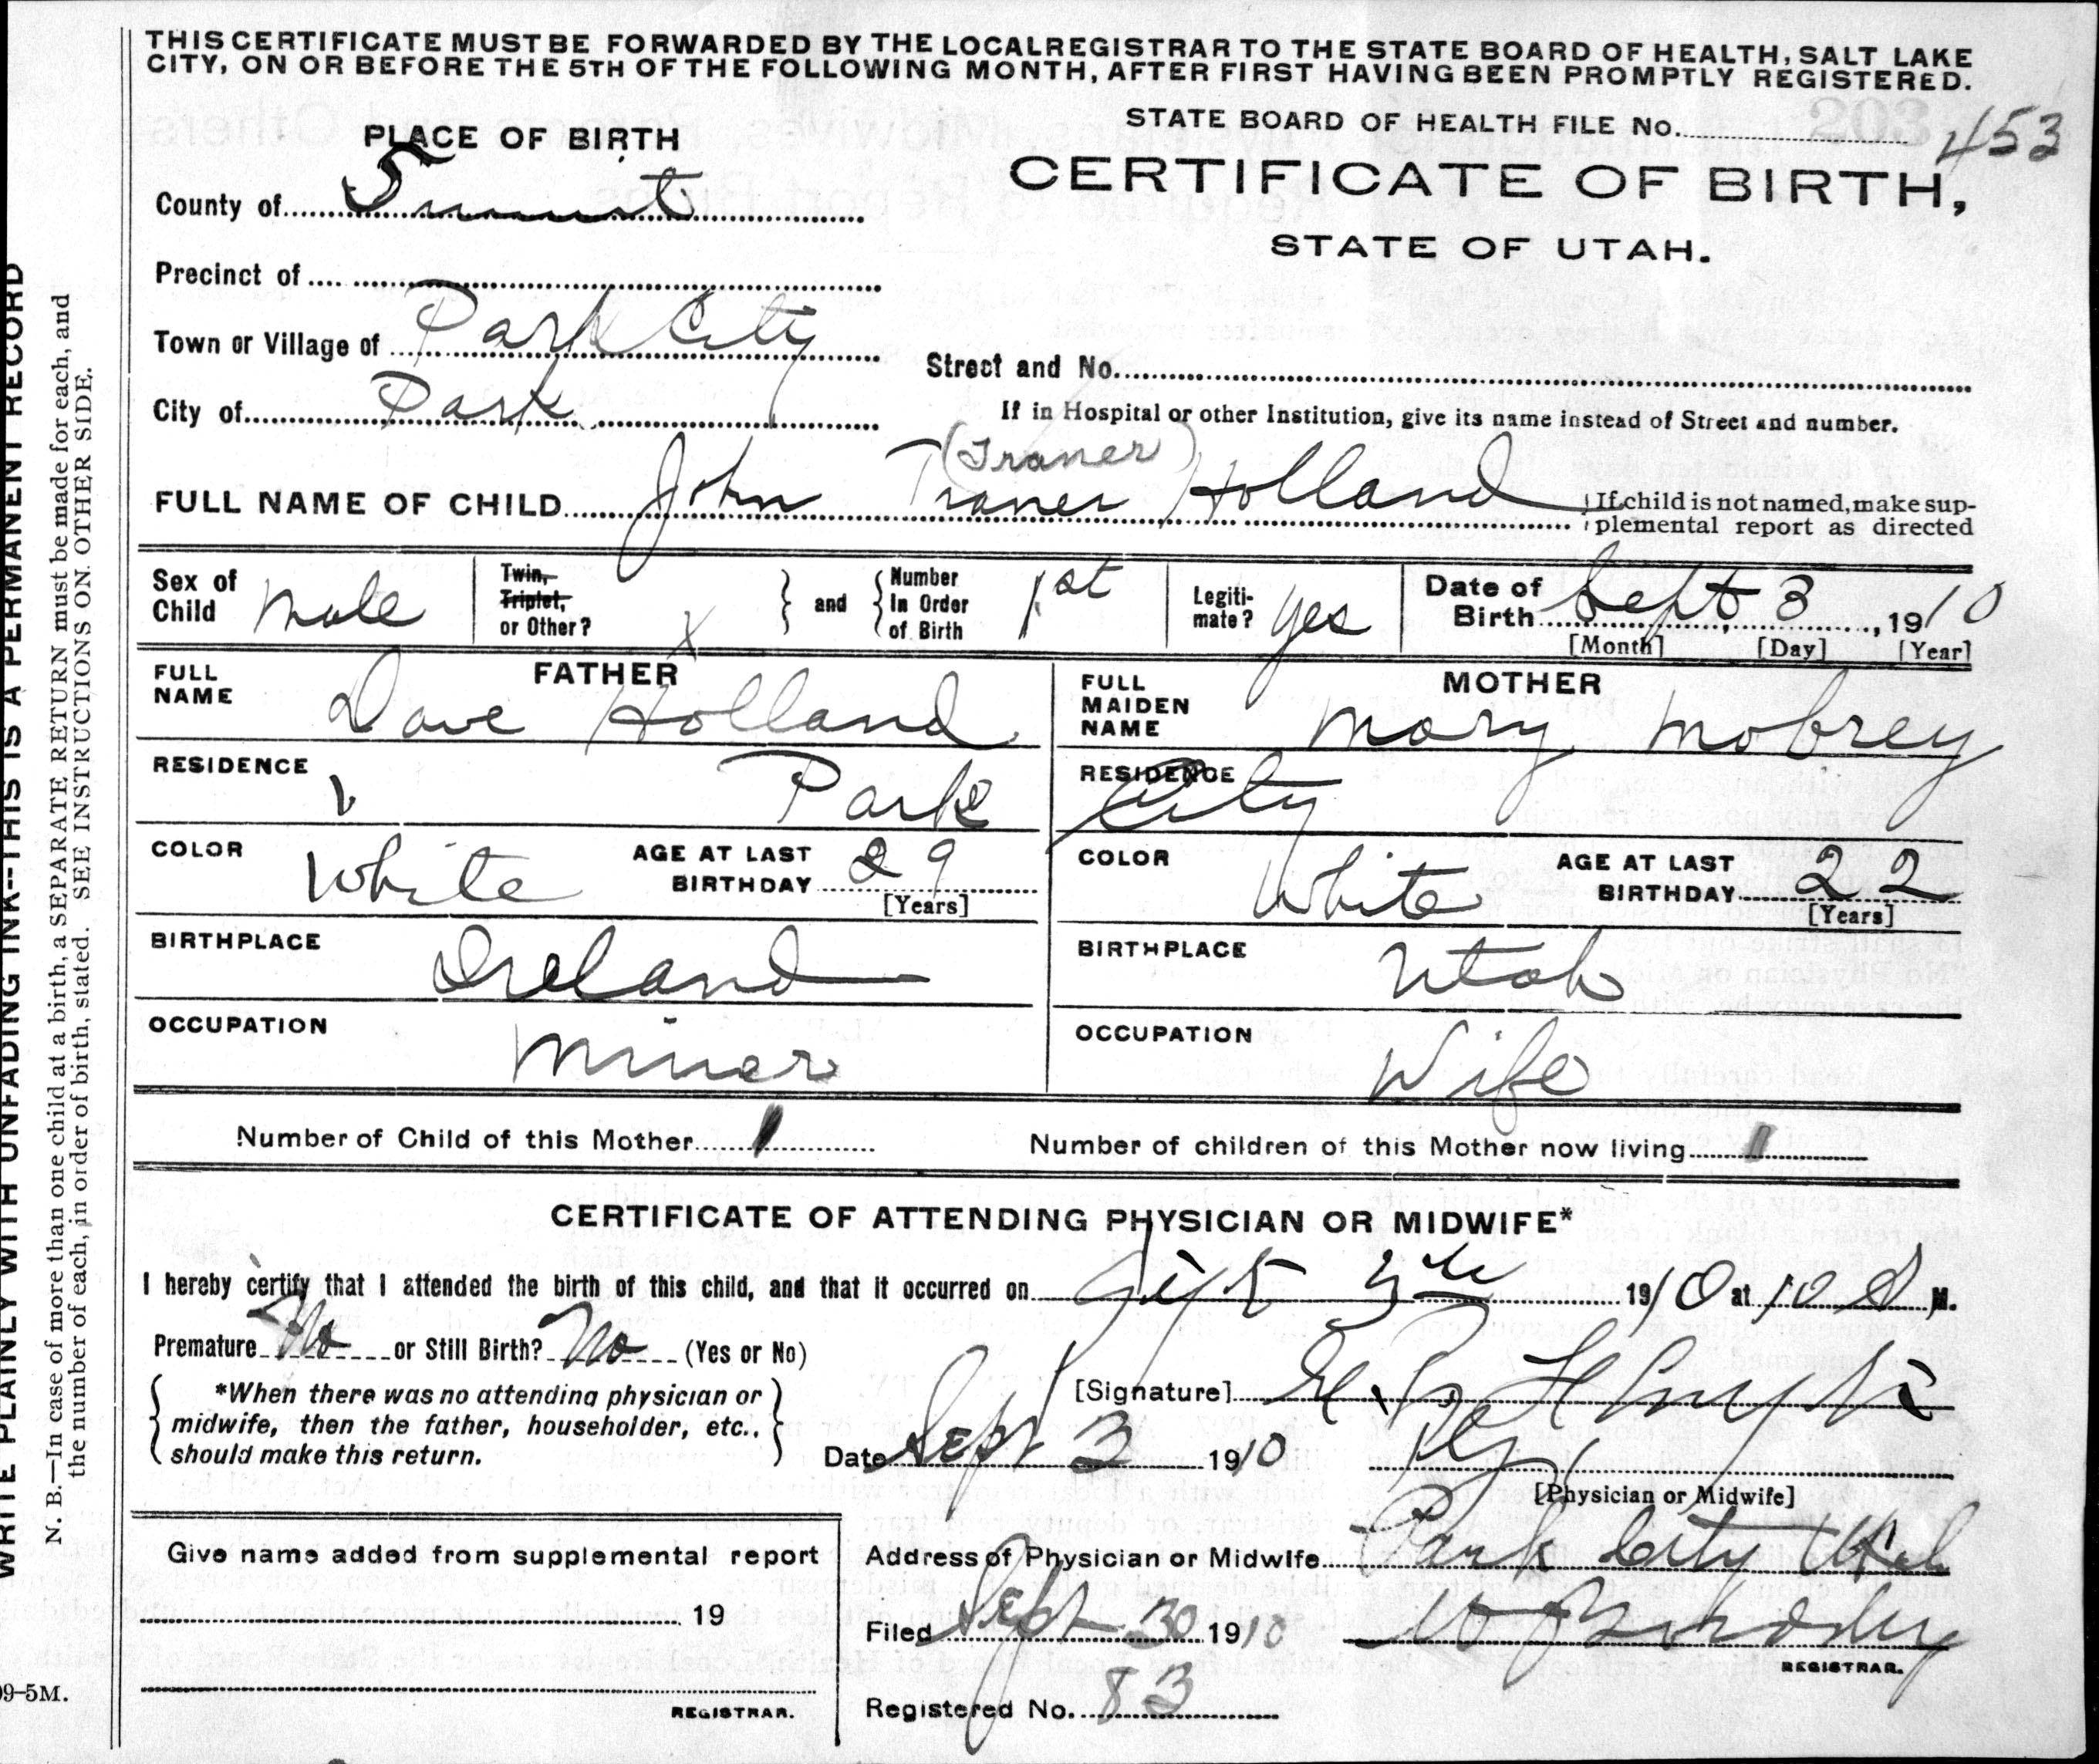 THIS CERTIFICATE MUST BE FORWARDED BY THE LOCAL REGISTRAR TO THE STATE BOARD OF HEALTH, SALT LAKE
CITY, ON OR BEFORE THE 5TH OF THE FOLLOWING MONTH, AFTER FIRST HAVING BEEN PROMPTLY REGISTERED.
STATE BOARD OF HEALTH FILE No. 453
PLACE OF BIRTH
CERTIFICATE OF BIRTH,
STATE OF UTAH.
County of Summit
Precinct of
Town or Village of Park City
Street and No.
City of Park
If in Hospital or other Institution, give its name instead of Street and number.
(Traner)
FULL NAME OF CHILD John Traner Holland
If child is not named, make sup-
plemental report as directed
Sex of Child Male
Twin, Triplet, or Other? X
and Number In Order of Birth 1st
Legiti-mate? Yes
Date of Birth Sept 3, 1910
[Month] [Day] [Year]
FATHER
FULL NAME Dave Holland
MOTHER
FULL MAIDEN NAME Mary Mobrey
RESIDENCE Park
RESIDENCE City
COLOR White
AGE AT LAST BIRTHDAY 29
[Years]
COLOR White
AGE AT LAST BIRTHDAY 22
[Years]
BIRTHPLACE Ireland
BIRTHPLACE Utah
OCCUPATION Miner
OCCUPATION Wife
Number of Child of this Mother 1
Number of children of this Mother now living 1
CERTIFICATE OF ATTENDING PHYSICIAN OR MIDWIFE*
I hereby certify that I attended the birth of this child, and that it occurred on Sept 1910 at 10 M.
Premature No or Still Birth? No (Yes or No)
*When there was no attending physician or
midwife, then the father, householder, etc.,
should make this return.
[Signature]
Date Sept 3 1910
[Physician or Midwife]
Give name added from supplemental report
19
REGISTRAR.
Address of Physician or Midwife Park City Utah
Filed Sept 30 1910
REGISTRAR.
Registered No. 83
WRITE PLAINLY WITH UNFADING INK--THIS IS A PERMANENT RECORD
N. B.—In case of more than one child at a birth, a SEPARATE RETURN must be made for each, and
the number of each, in order of birth, stated. SEE INSTRUCTIONS ON OTHER SIDE.
09-5M.